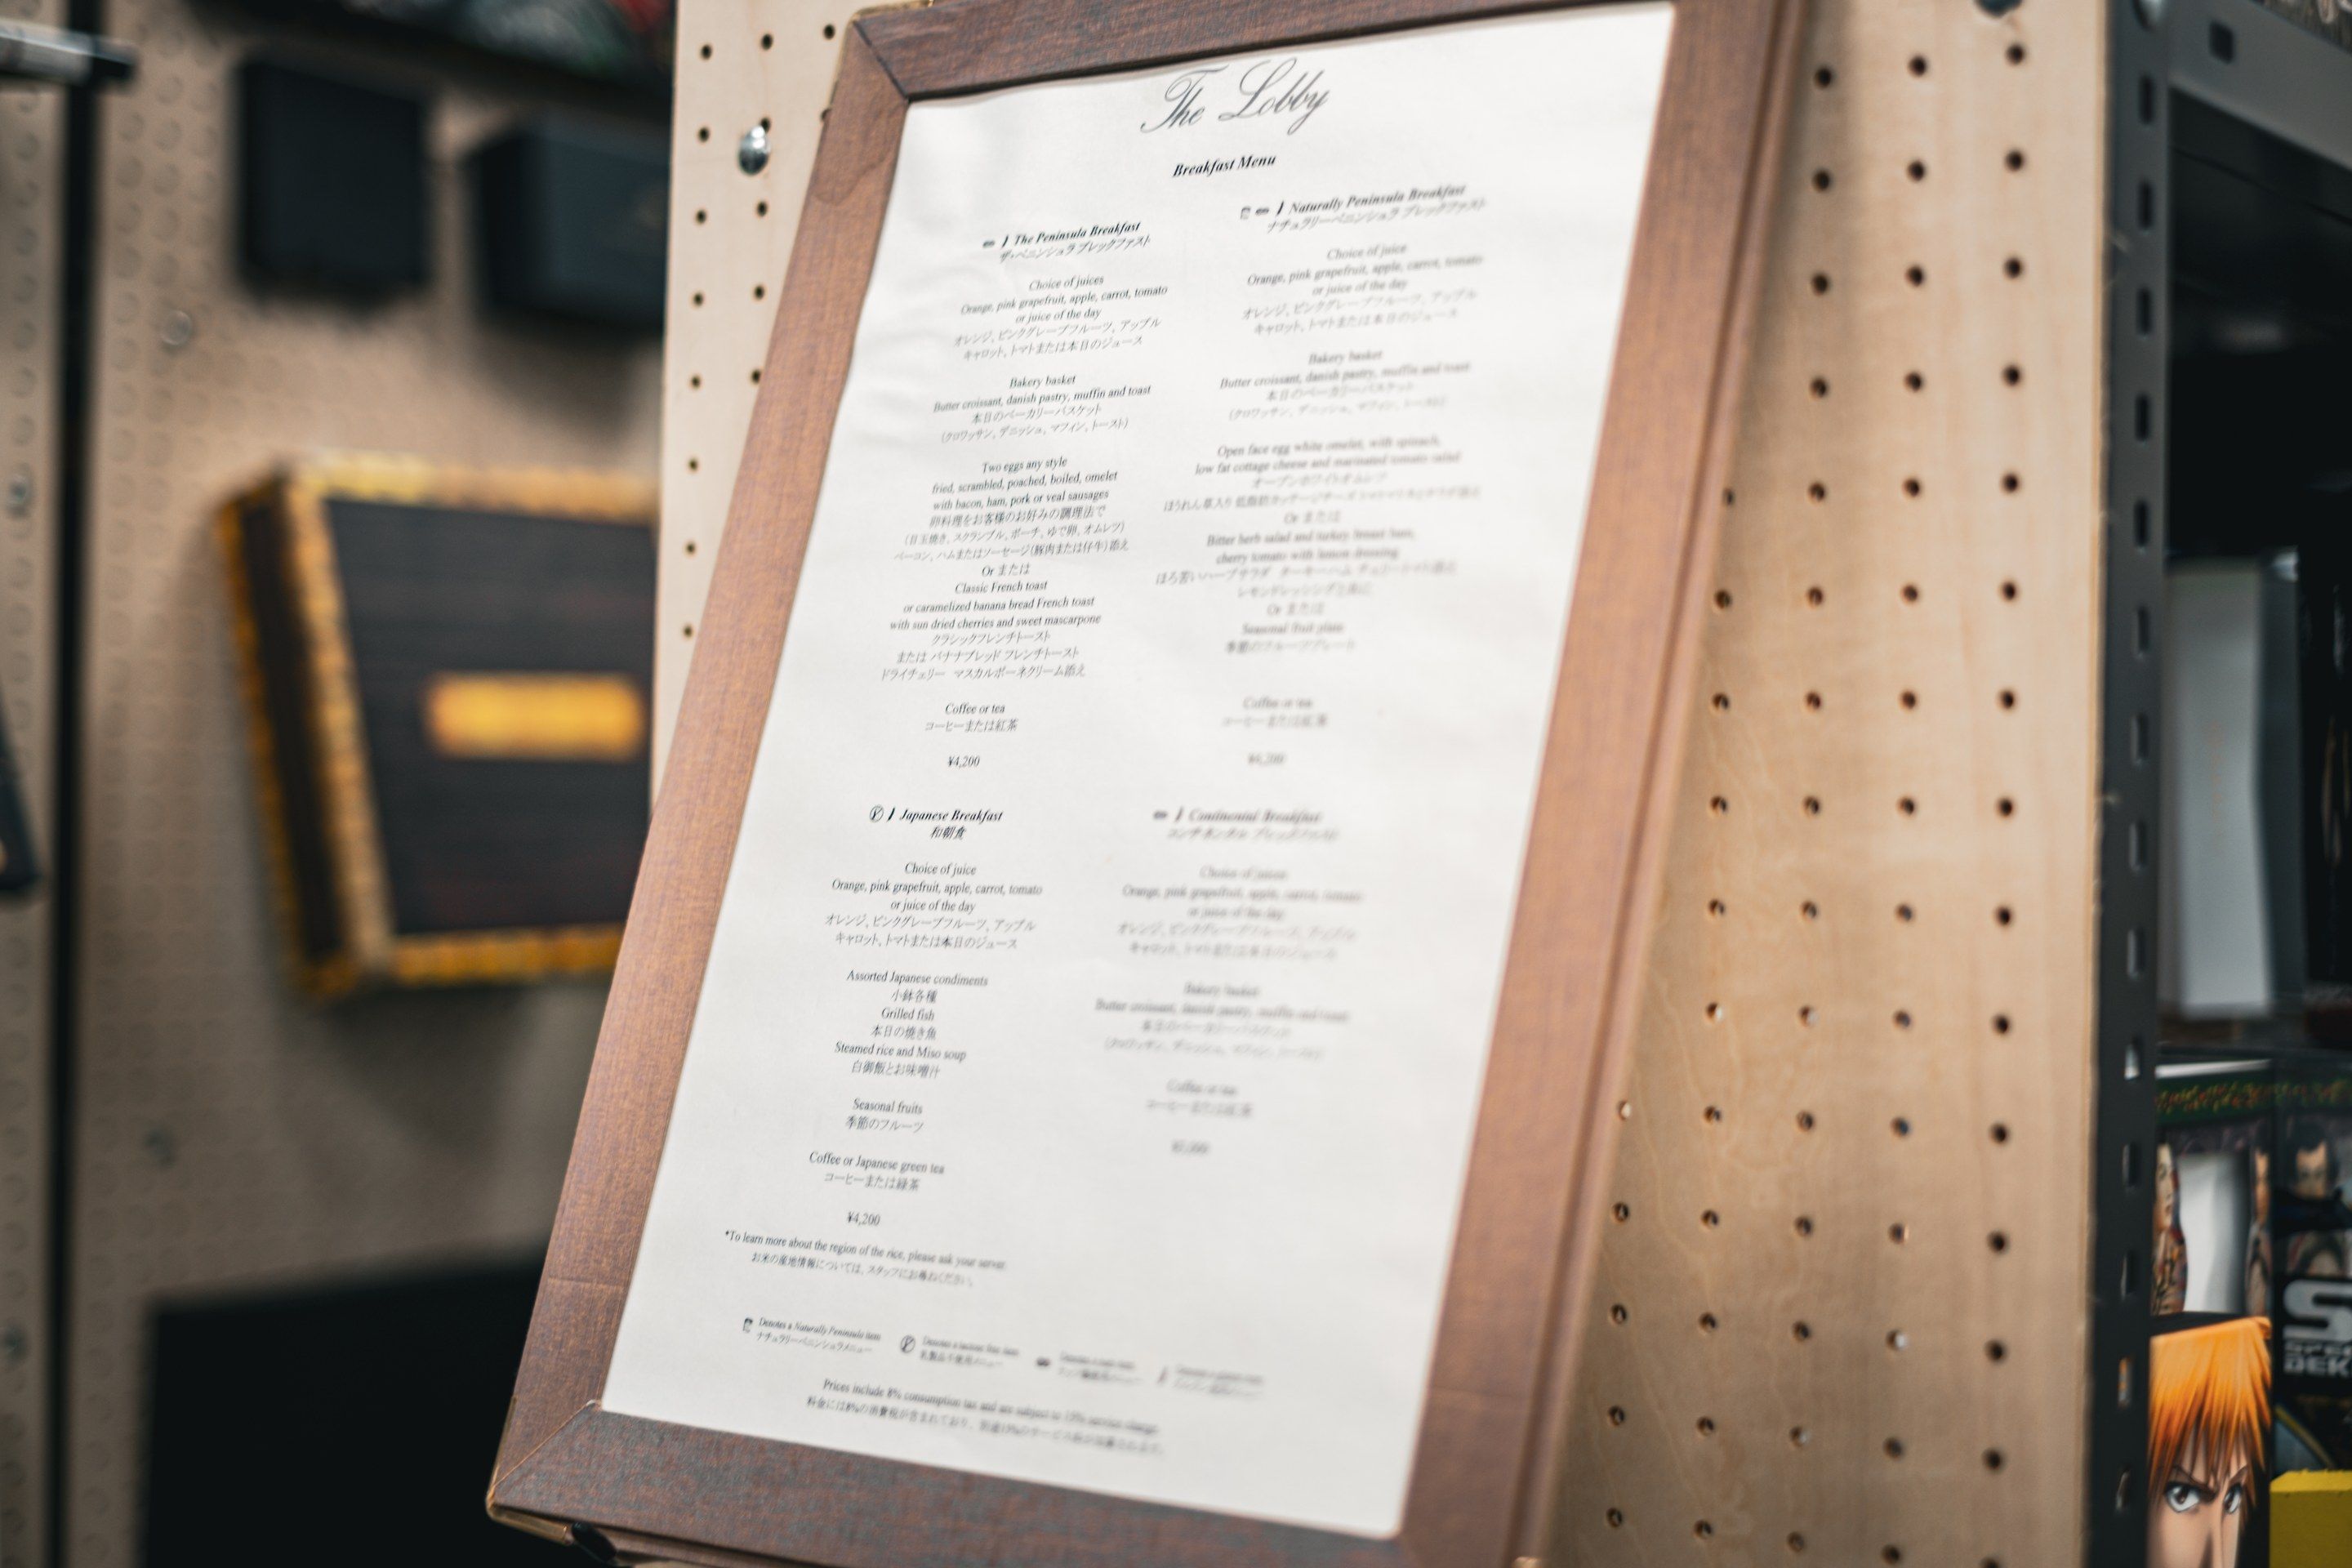 The Lobby
Breakfast Menu
The Peninsula Breakfast
ザ・ペニンシュラ ブレックファスト
Choice of juices
Orange, pink grapefruit, apple, carrot, tomato
or juice of the day
オレンジ、ピンクグレープフルーツ、アップル
キャロット、トマトまたは本日のジュース
Bakery basket
Butter croissant, danish pastry, muffin and toast
本日のベーカリーバスケット
(クロワッサン、デニッシュ、マフィン、トースト)
Two eggs any style
fried, scrambled, poached, boiled, omelet
with bacon, ham, pork or veal sausages
卵料理をお客様のお好みの調理法で
(目玉焼き、スクランブル、ポーチ、ゆで卵、オムレツ)
ベーコン、ハムまたはソーセージ(豚肉または仔牛)添え
Or または
Classic French toast
or caramelized banana bread French toast
with sun dried cherries and sweet mascarpone
クラシックフレンチトースト
または バナナブレッド フレンチトースト
ドライチェリー マスカルポーネクリーム添え
Coffee or tea
コーヒーまたは紅茶
¥4,200
Naturally Peninsula Breakfast
ナチュラリーペニンシュラ ブレックファスト
Choice of juice
Orange, pink grapefruit, apple, carrot, tomato
or juice of the day
オレンジ、ピンクグレープフルーツ、アップル
キャロット、トマトまたは本日のジュース
Bakery basket
Butter croissant, danish pastry, muffin and toast
本日のベーカリーバスケット
(クロワッサン、デニッシュ、マフィン、トースト)
Open face egg white omelet, with spinach,
low fat cottage cheese and marinated tomato salad
オープンホワイトオムレツ
ほうれん草入り 低脂肪カッテージチーズ
Or または
Bitter herb salad and turkey breast ham,
cherry tomato with lemon dressing
ほろ苦いハーブサラダ ターキーハム チェリートマト添え
レモンドレッシングと共に
Or または
Seasonal fruit plate
季節のフルーツプレート
Coffee or tea
コーヒーまたは紅茶
¥4,200
Japanese Breakfast
和朝食
Choice of juice
Orange, pink grapefruit, apple, carrot, tomato
or juice of the day
オレンジ、ピンクグレープフルーツ、アップル
キャロット、トマトまたは本日のジュース
Assorted Japanese condiments
小鉢各種
Grilled fish
本日の焼き魚
Steamed rice and Miso soup
白御飯とお味噌汁
Seasonal fruits
季節のフルーツ
Coffee or Japanese green tea
コーヒーまたは緑茶
¥4,200
*To learn more about the region of the rice, please ask your server.
お米の産地情報については、スタッフにお尋ねください。
Continental Breakfast
コンチネンタル ブレックファスト
Choice of juices
Orange, pink grapefruit, apple, carrot, tomato
or juice of the day
オレンジ、ピンクグレープフルーツ、アップル
キャロット、トマトまたは本日のジュース
Bakery basket
Butter croissant, danish pastry, muffin and toast
本日のベーカリーバスケット
(クロワッサン、デニッシュ、マフィン、トースト)
Coffee or tea
コーヒーまたは紅茶
Denotes a Naturally Peninsula item
ナチュラリーペニンシュラメニュー
Denotes a lactose free item
乳製品不使用メニュー
Prices include 8% consumption tax and are subject to 15% service charge.
料金には8%の消費税が含まれており、別途15%のサービス料が加算されます。